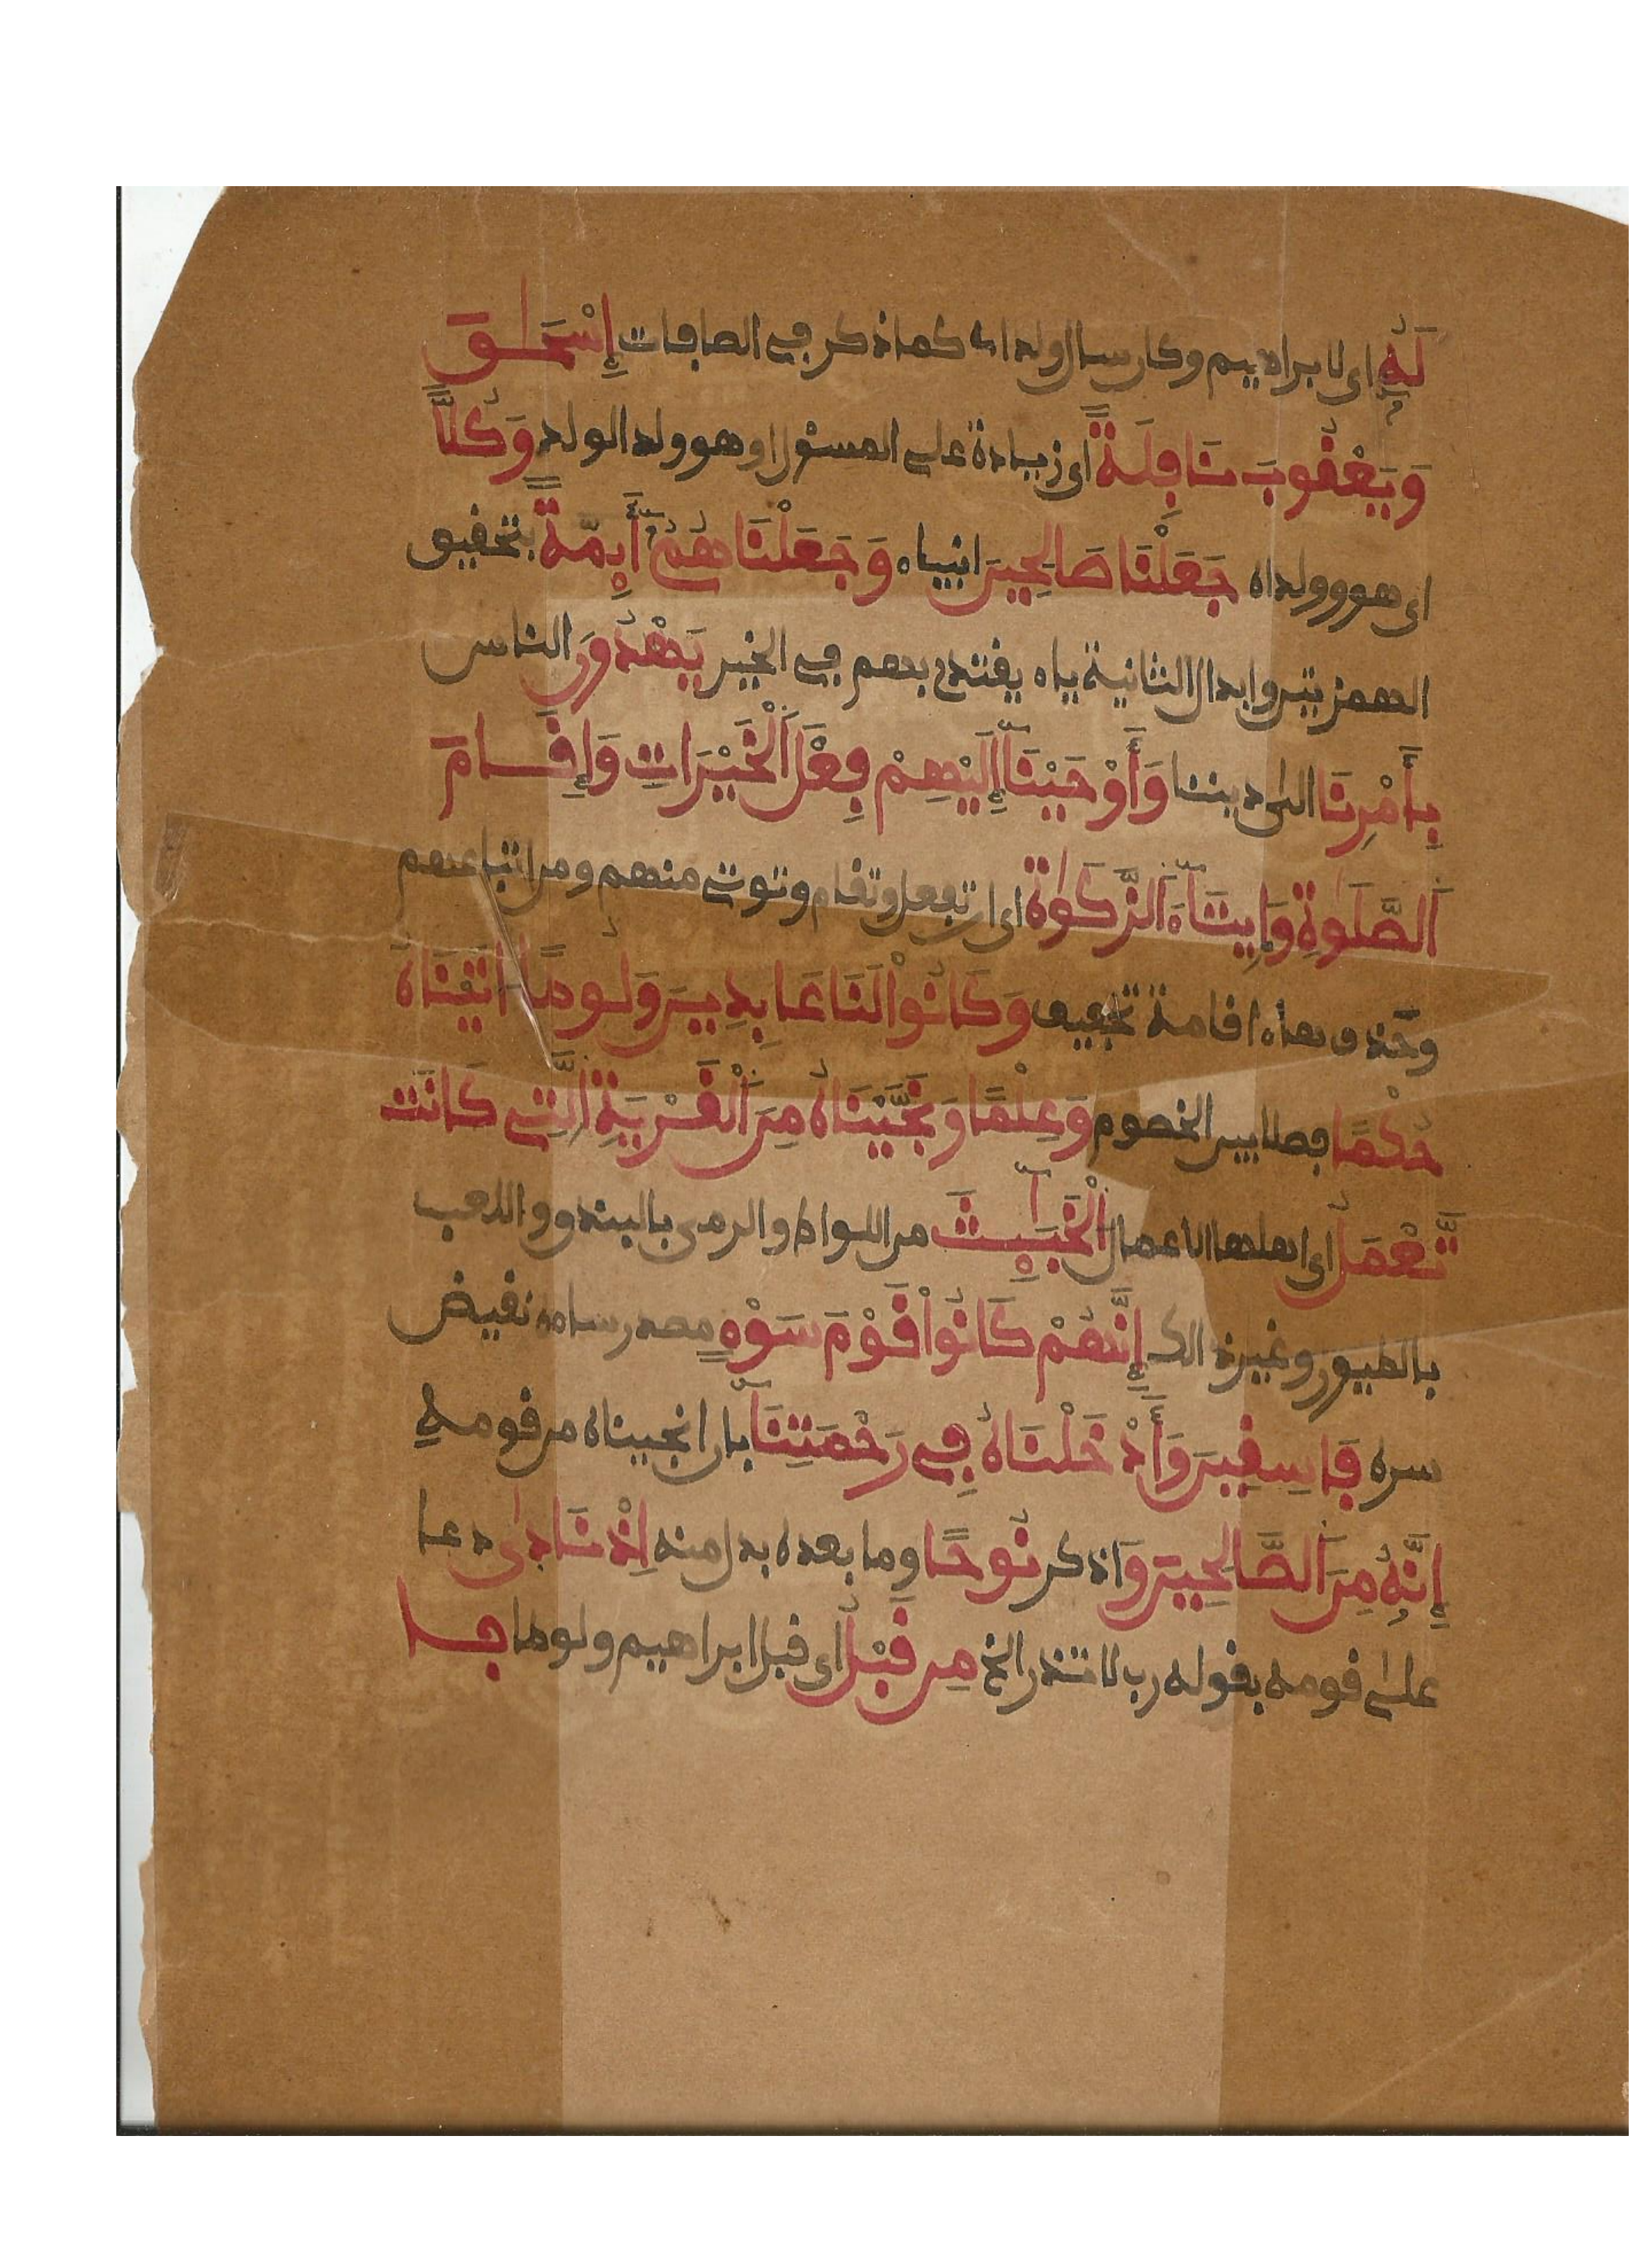 لَهُۥ اى لابراهيم وكان سال ولدا كما ذكر في الصافات إِسْحَٰقَ
وَيَعْقُوبَ نَافِلَةً اى زيادة على المسئول او هو ولد الولد وَكُلّاً
اى هو وولداه جَعَلْنَا صَالِحِينَ انبياء وَجَعَلْنَاهُمُۥ أَيِمَّةً بتحقيق
الهمزتين وابدال الثانية ياء يقتدى بهم في الخير يَهْدُونَ الناس
بِأَمْرِنَا الى ديننا وَأَوْحَيْنَآ إِلَيْهِمْ فِعْلَ اَلْخَيْرَاتِ وَإِقَامَ
اَلصَّلَوٰةِ وَإِيتَآءَ اَلزَّكَوٰةِ اى ان تفعل وتقام وتوتى منهم ومن اتباعهم
وحذف هاء اقامة تخفيف وَكَانُواْ لَنَا عَابِدِينَ وَلُوطاً اتَيْنَاهُ
حُكْمًا فصلا بين الخصوم وَعِلْمًا وَنَجَّيْنَاهُ مِنَ اَلْقَرْيَةِ اِلَّتِي كَانَت
تَّعْمَلُ اى اهلها الاعمال اَلْخَبَٰٓئِثَ من اللواط والرمى بالبندق واللعب
بالطيور وغير ذالك إِنَّهُمْ كَانُواْ قَوْمَ سَوْءٍ مصدر ساءه نقيض
سره فَاسِقِينَ وَأَدْخَلْنَاهُ فِي رَحْمَتِنَآ بان انجيناه من قومه
إِنَّهُۥ مِنَ اَلصَّالِحِينَ وَ اذكر نُوحًا وما بعده بدل منه إِذْ نَادَىٰ دعا
على قومه بقوله رب لا تذر الخ مِن قَبْلُ اى قبل ابراهيم ولوط فا